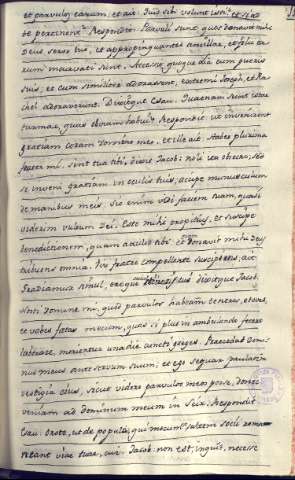 et parvulos earum, et ait: Quid sibi volunt isti? et si ad
te pertinent? Respondit: Parvuli sunt quos donavit mihi
Deus servo tuo, et appropinquantes ancillæ, et filii ea-
rum incurvati sunt. Accessit quoque Lia cum pueris
suis, et cum similiter adorassent, extremi Joseph, et Ra-
chel adoraverunt. Dixitque Esau. Quænam sunt istæ
turmæ, quas obviam habui? Respondit: ut invenirem
gratiam coram domino meo. et ille ait. Habeo plurima
frater mi, sint tua tibi. dixit Jacob: noli ita obsecro; sed
si inveni gratiam in oculis tuis, accipe munusculum
de manibus meis. Sic enim vidi faciem tuam, quasi
viderim vultum Dei. Esto mihi propitius, et suscipe
benedictionem, quam attuli tibi, et donavit mihi deus
tribuens omnia. Vix fratre compellente suscipiens, ait
Gradiamur simul, eroque itineris tui dixitque Jacob.
Nosti domine mi, quod parvulos habeam teneros, et oves,
et boves fetas mecum, quas si plus in ambulando fecero
laborare, morientur una die cuncti greges. Præcedat domi-
nus meus ante servum suum; et ego sequar paulatim
vestigia ejus, sicut videro parvulos meos posse, donec
veniam ad dominum meum in Seir. Respondit
Esau. Oro te, ut de populo, qui mecum est, saltem socii rema-
neant viæ tuæ, cui. Jacob: non est, inquit, necesse